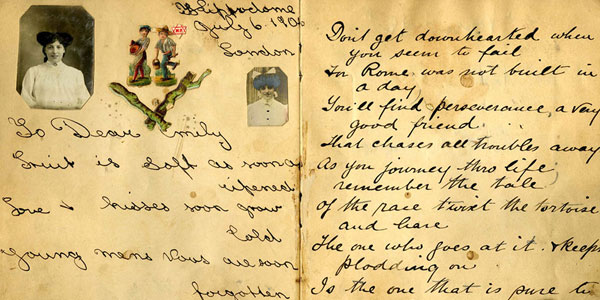 Hippodrome
July 6. 1906
London
To Dear Emily
Fruit is Soft as soon as
ripened
Love & kisses soon grow
Cold
Young mens Vows are soon
forgotten
Don't get downhearted when
you seem to fail
For Rome was not built in
a day
You'll find perseverance a very
good friend
That chases all troubles away
As you journey thro life
remember the tale
Of the race twixt the tortoise
and hare
The one who goes at it & keeps
plodding on
Is the one that is pure to